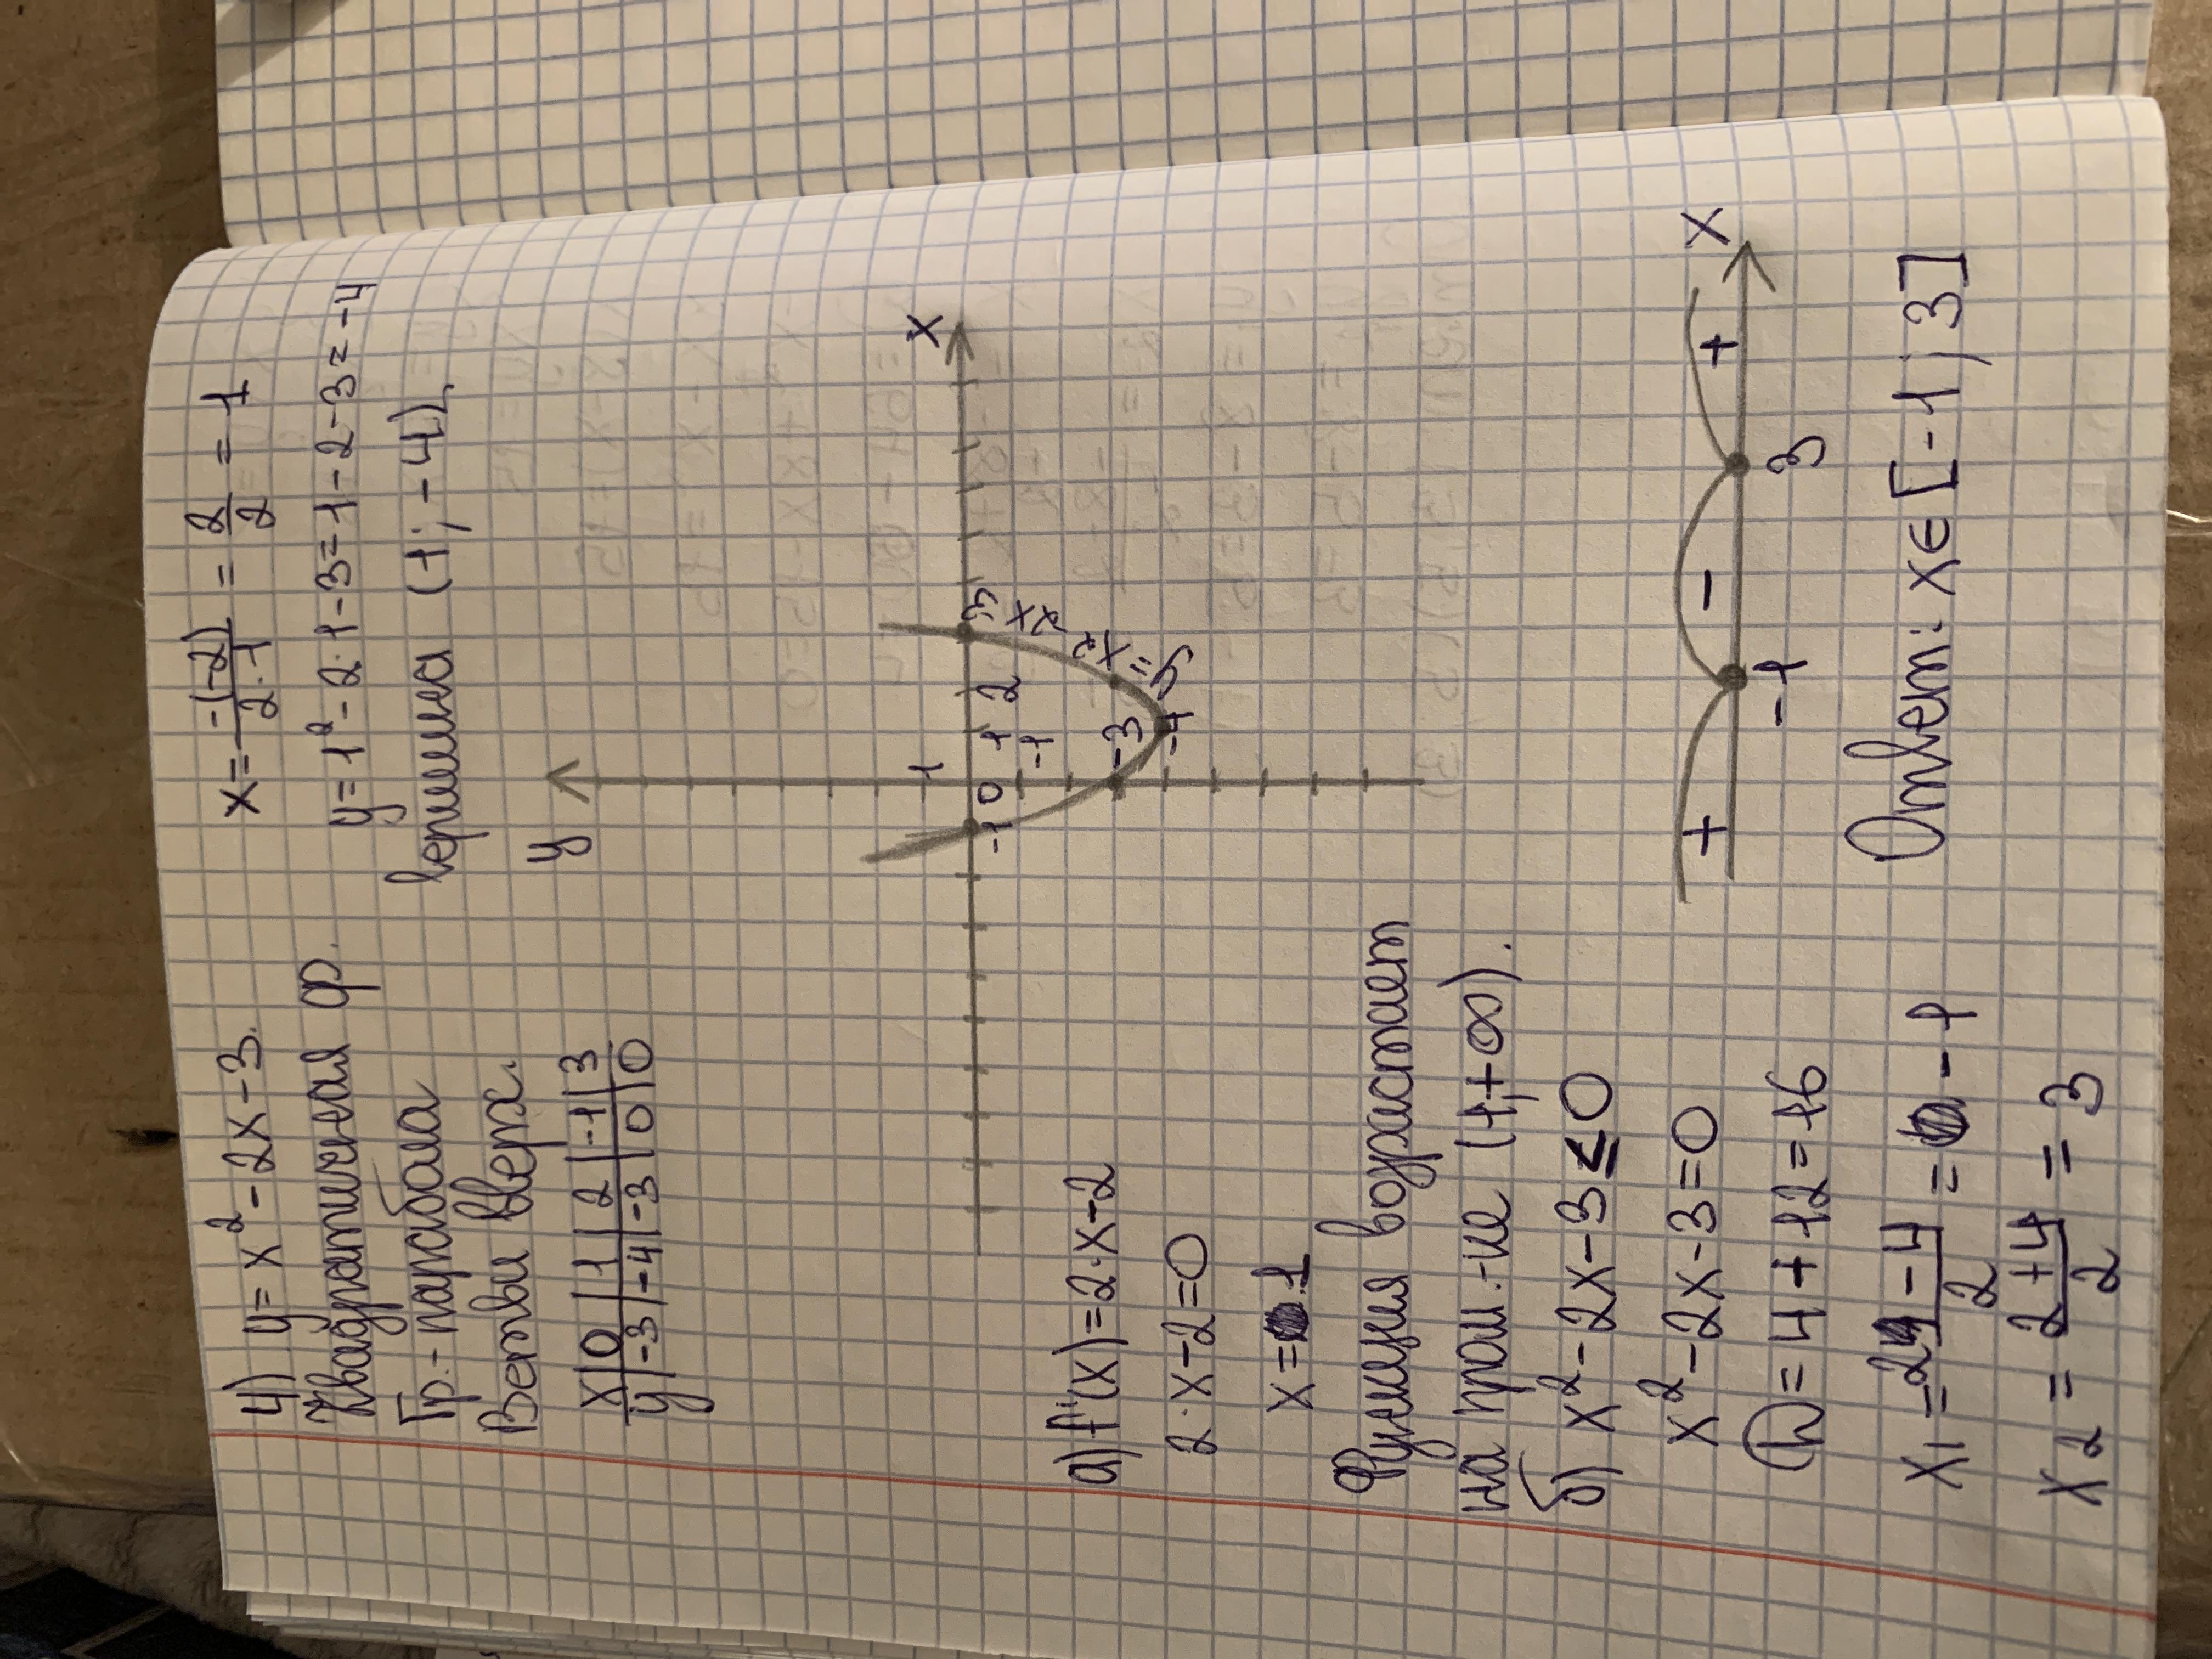 4) y = x² - 2x - 3.
Квадратичная ф.
Гр. - парабола
Ветви вверх.
x | 0 | 1 | 2 | -1 | 3
y | -3 | -4 | -3 | 0 | 0
x = -(-2)/2·1 = 2/2 = 1
y = 1² - 2·1 - 3 = 1 - 2 - 3 = -4
вершина (1; -4),
y
x
1
-1 0 1 2 3
-1
-3
-4
а) f'(x) = 2·x - 2
2·x - 2 = 0
x = 1
Функция возрастает
на пром.-ке (1; +∞).
б) x² - 2x - 3 ≤ 0
x² - 2x - 3 = 0
D = 4 + 12 = 16
x₁ = 2 - 4/2 = -1
x₂ = 2 + 4/2 = 3
+ - + x
-1 3
Ответ: x ∈ [-1; 3]